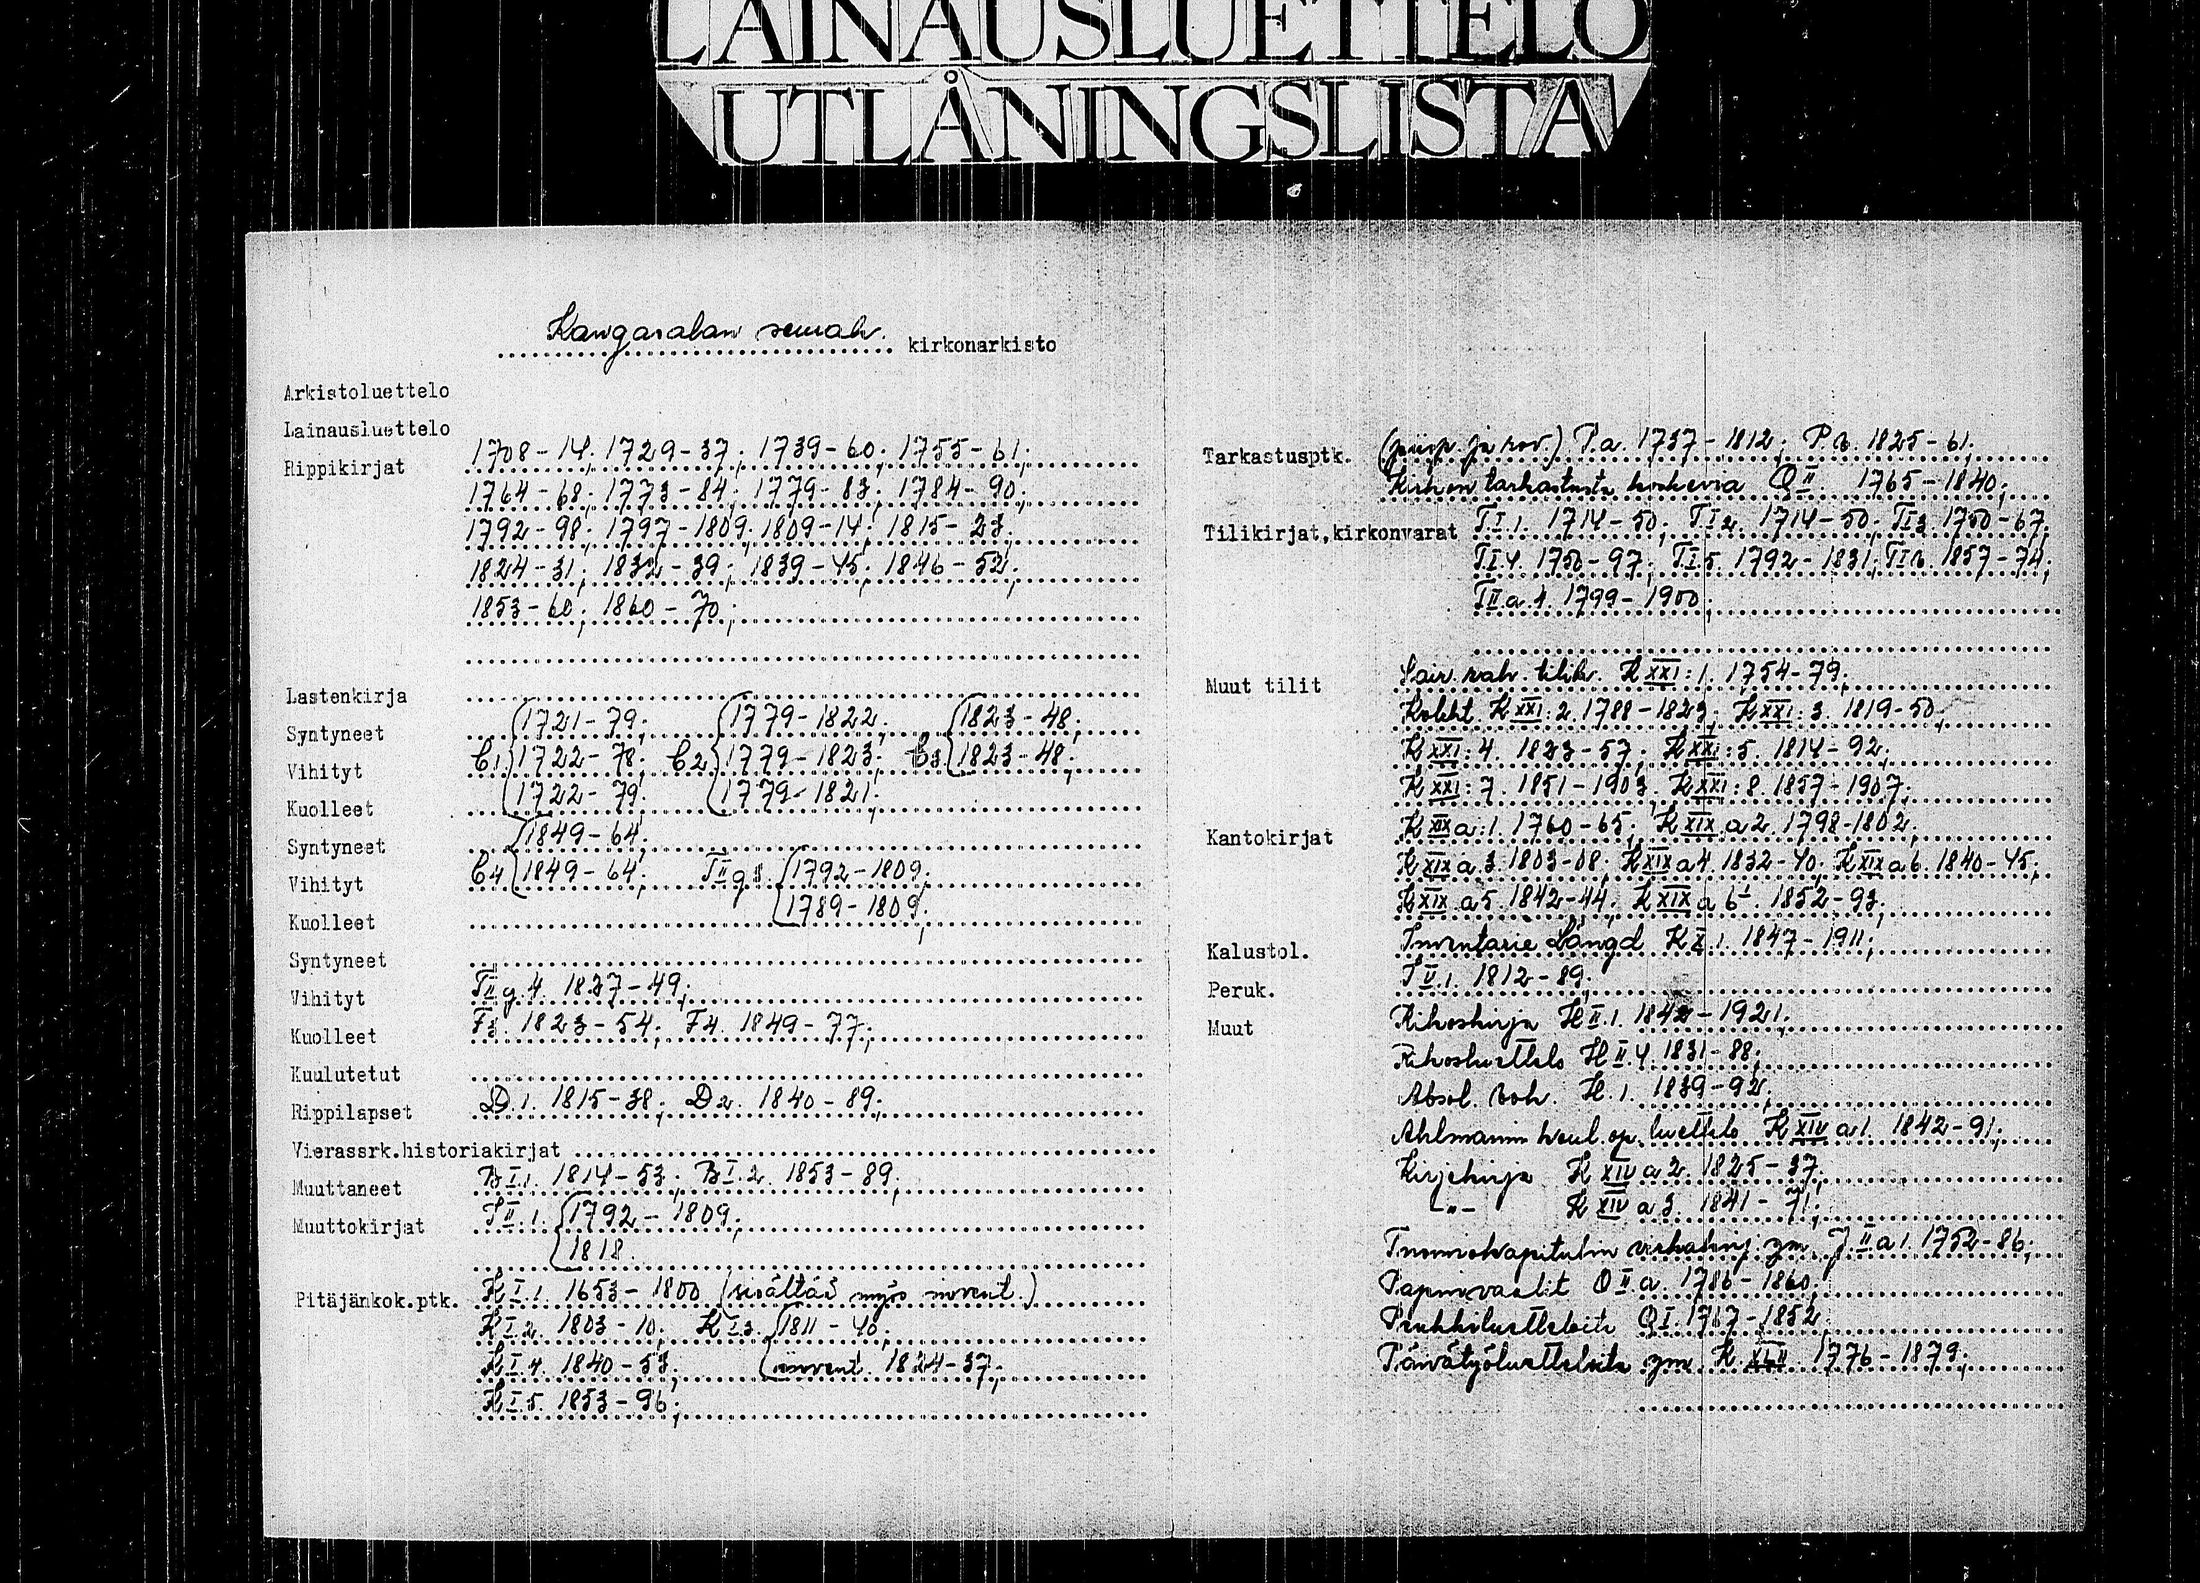 LAINAUSLUETTELO
UTLÅNINGSLISTA
Kangasalan seurak. kirkonarkisto
Arkistoluettelo
Lainausluettelo
Rippikirjat 1708-14; 1729-37; 1739-60; 1755-61;
1764-68; 1773-84; 1779-83; 1784-90;
1792-98; 1797-1809; 1809-14; 1815-23;
1824-31; 1832-39; 1839-45; 1846-52;
1853-60; 1860-70;
Lastenkirja
Syntyneet 1721-79; 1779-1822; 1823-48;
Vihityt C1. 1722-78; C2 1779-1823; C3 1823-48;
Kuolleet 1722-79; 1779-1821;
Syntyneet 1849-64;
Vihityt C4 1849-64; TIIg 1792-1809;
Kuolleet 1789-1809;
Syntyneet
Vihityt TIIg.4. 1837-49;
Kuolleet F3. 1823-54; F4. 1849-77;
Kuulutetut
Rippilapset D.1. 1815-38; D2. 1840-89;
Vierassrk.historiakirjat
Muuttaneet BI.1. 1814-53; BI.2. 1853-89;
Muuttokirjat III:1. 1792-1809;
1818.
Pitäjänkok.ptk. KI.1. 1653-1800 (sisältää myös invent.)
KI.2. 1803-10; KI.3. 1811-40;
KI.4. 1840-53; invent. 1824-37;
KI.5. 1853-96;
Tarkastusptk. (piisp. ja rov.) P.a. 1737-1812; P.b. 1825-61;
Kirkon tarkastusta koskevia QII. 1765-1840;
Tilikirjat,kirkonvarat TI.1. 1714-50; TI2. 1714-50; TI3. 1750-67;
TI.4. 1750-97; TI.5. 1792-1831; TIb. 1857-74;
TII.a.1. 1799-1900;
Muut tilit Sair. rah. tilik. KXXI:1. 1754-79;
Kolekt. KXXI:2. 1788-1823; KXXI:3. 1819-50;
KXXI:4. 1823-57; KXXI:5. 1814-92;
KXXI:7. 1851-1903. KXXI:8. 1857-1907;
Kantokirjat KXIXa:1. 1760-65; KXIX.a2. 1798-1802;
KXIXa3. 1803-08; KXIXa4. 1832-40; KXIXa6. 1840-45;
KXIX.a5. 1842-44; KXIXa6¹. 1852-93;
Kalustol. Inventarie Längd KX.1. 1847-1911;
Peruk. III.1. 1812-89;
Muut Rikoskirja HII.1. 1842-1921;
Rikosluettelo HII.4. 1831-88;
Absol. H.1. 1839-92;
Ahlmannin koul. op. luettelo KXIVa1. 1842-91;
Kirjekirja KXIVa2. 1825-37;
-"- KXIVa3. 1841-71;
Tuomiokapitulin virkakirj. ym. J.IIa1. 1752-86;
Papinvaalit OII.a. 1786-1860;
Penkkiluetteloita QI. 1767-1852;
Päivätyöluetteloita ym. K. 1776-1879;